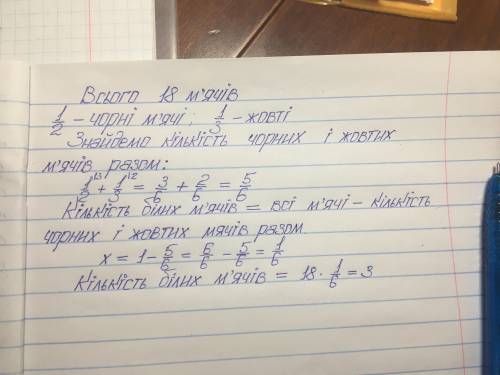 Всього 18 м'ячів
1/2 - чорні м'ячі; 1/3 - жовті
Знайдемо кількість чорних і жовтих
м'ячів разом:
1/2^13 + 1/3^12 = 3/6 + 2/6 = 5/6
Кількість білих м'ячів = всі м'ячі - кількість
чорних і жовтих мячів разом
x = 1 - 5/6 = 6/6 - 5/6 = 1/6
Кількість білих м'ячів = 18 · 1/6 = 3